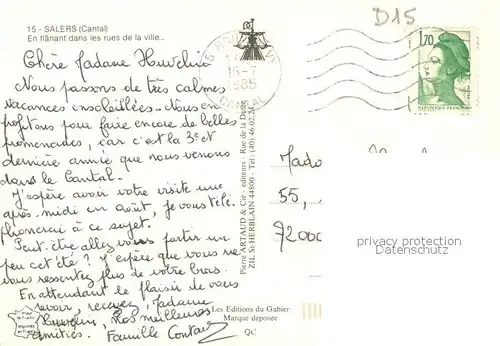 15 - SALERS (Cantal)
En flânant dans les rues de la ville...
D15
1985
1,70
REPUBLIQUE FRANCAISE
Chère Madame Huvelin
Nous passons de très calmes
vacances ensoleillées. Nous en
profitons pour faire encore de belles
promenades, car c'est la 3e et
dernière année que nous venons
dans le Cantal.
J'espère avoir votre visite une
après-midi en août, je vous télé.
phonerai à ce sujet.
Peut-être allez vous partir un
peu cet été ? J'espère que vous ne
vous ressentez plus de votre bras.
En attendant le plaisir de vous
savoir, recevez, Madame
Huvelin, Nos meilleures
amitiés. Famille
Pierre ARTAUD & Cie - éditeurs - Rue de la Dutée
Z.I.L. St-HERBLAIN 44800 - Tél : (40) 46.02.
Mado
55,
72000
privacy protection
Datenschutz
Les Editions du Gabier
Marque déposée
QC